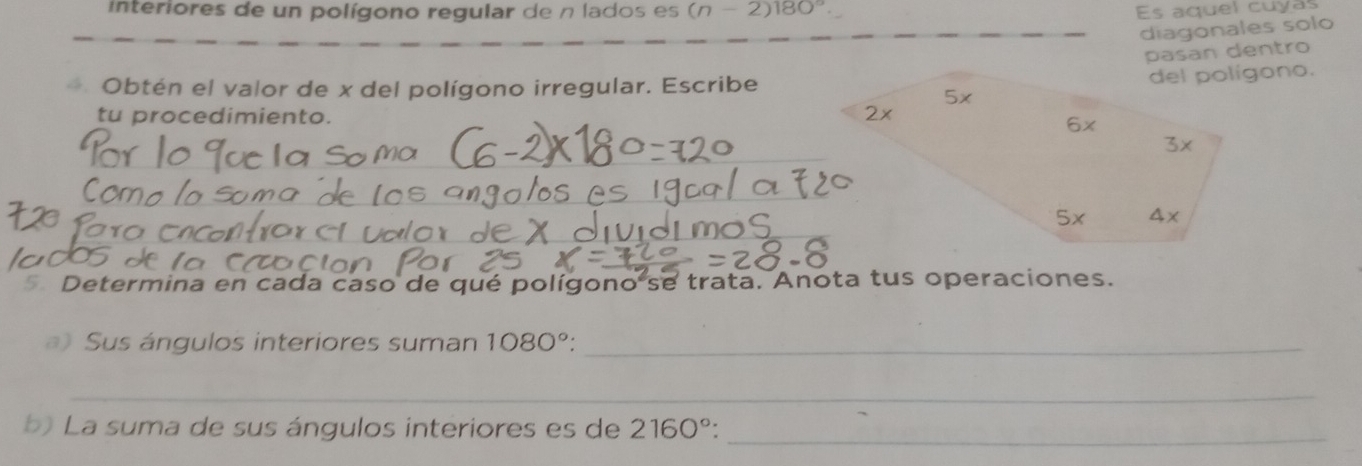 interiores de un polígono regular de n lados es (n - 2)180°.
Es aquel cuyas
diagonales solo
pasan dentro
del polígono.
4. Obtén el valor de x del polígono irregular. Escribe
tu procedimiento.
2x
5x
6x
3x
5x
4x
Por lo que la soma (6-2)x180=720
Como la soma de los angolos es igoal a 720
720 Para encontrar el valor de x dividimos
lados de la ecoacion por 25 x = 720/25 = 28.8
5. Determina en cada caso de qué polígono se trata. Anota tus operaciones.
a) Sus ángulos interiores suman 1080°:
b) La suma de sus ángulos interiores es de 2160°: